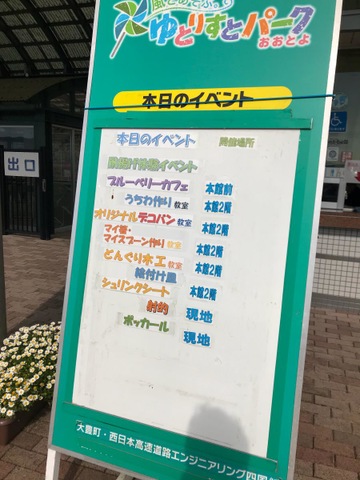 風とあそぼって
ゆとりすとパーク
おおとよ
本日のイベント
本日のイベント 開催場所
体験イベント
ブルーベリーカフェ 本館前
うちわ作り教室 本館2階
オリジナルデコパン教室 本館2階
マイ箸・
マイスプーン作り教室 本館2階
どんぐり木工教室 本館2階
絵付け皿
シュリンクシート 本館2階
射的 現地
ポッカール 現地
大豊町・西日本高速道路エンジニアリング四国
出口